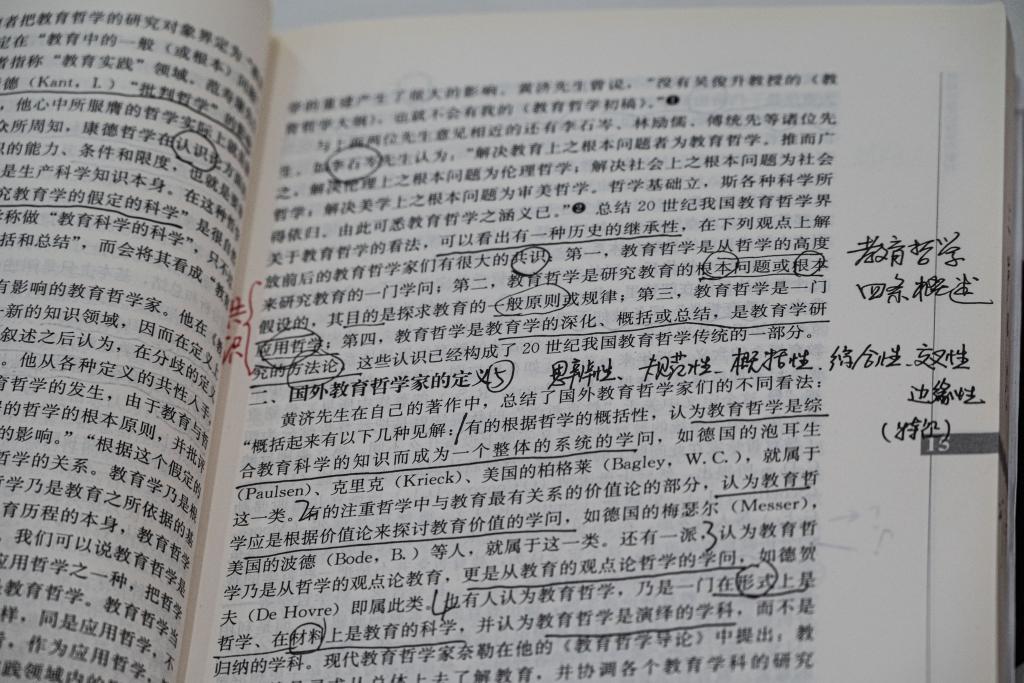 者把教育哲学的研究对象界定为
定在“教育中的一般（或根本）问
者指称“教育实践”领域，范寿康
德（Kant, I.）“批判哲学”的
，他心中所服膺的哲学实际上就是
众所周知，康德哲学在认识论方面
识的能力、条件和限度，也就是要
是生产科学知识本身。在这种哲
究教育学的假定的科学”是很自
称做“教育科学的科学”，只不
括和总结”，而会将其看成“教
有影响的教育哲学家。他在
一新的知识领域，因而在定义上
叙述之后认为，在分歧的定义
。他从各种定义的共性人手，
教育学的发生，由于教育与哲
的哲学的根本原则，并批评
的影响。”“根据这个假定的
哲学的关系。教育学乃是根
学乃是教育之所依据的基
育历程的本身，教育哲学
。我们可以说教育哲学是
应用哲学之一种，把哲学
是教育哲学。教育哲学当
样，同是应用哲学，不
看，作为应用哲学，
践领域内的
学的重建产生了很大的影响。黄济先生曾说，“没有吴俊升教授的《教
育哲学大纲》，也就不会有我的《教育哲学初稿》。”❶
与上两位先生意见相近的还有李石岑、林励儒、傅统先等诸位先
生。如李石岑先生认为：“解决教育上之根本问题者为教育哲学。推而广
之，解决伦理上之根本问题为伦理哲学；解决社会上之根本问题为社会
哲学；解决美学上之根本问题为审美哲学。哲学基础立，斯各种科学所
得依归。由此可悉教育哲学之涵义已。”❷ 总结 20 世纪我国教育哲学界
关于教育哲学的看法，可以看出有一种历史的继承性，在下列观点上解
放前后的教育哲学家们有很大的共识：第一，教育哲学是从哲学的高度
来研究教育的一门学问；第二，教育哲学是研究教育的根本问题或根本
假设的，其目的是探求教育的一般原则或规律；第三，教育哲学是一门
应用哲学；第四，教育哲学是教育学的深化、概括或总结，是教育学研
究的方法论。这些认识已经构成了 20 世纪我国教育哲学传统的一部分。
共识
教育哲学
四条概述
二、国外教育哲学家的定义 (5) 思辨性、规范性、概括性、综合性、交叉性
边缘性
（特征）
15
黄济先生在自己的著作中，总结了国外教育哲学家们的不同看法：
“概括起来有以下几种见解：1有的根据哲学的概括性，认为教育哲学是综
合教育科学的知识而成为一个整体的系统的学问，如德国的泡耳生
（Paulsen）、克里克（Krieck）、美国的柏格莱（Bagley，W. C.），就属于
这一类。2有的注重哲学中与教育最有关系的价值论的部分，认为教育哲
学应是根据价值论来探讨教育价值的学问，如德国的梅瑟尔（Messer），
美国的波德（Bode，B.）等人，就属于这一类。还有一派，3认为教育哲
学乃是从哲学的观点论教育，更是从教育的观点论哲学的学问，如德贺
夫（De Hovre）即属此类。4也有人认为教育哲学，乃是一门在形式上是
哲学、在材料上是教育的科学，并认为教育哲学是演绎的学科，而不是
归纳的学科。现代教育哲学家奈勒在他的《教育哲学导论》中提出：教
从总体上去了解教育，并协调各个教育学科的研究